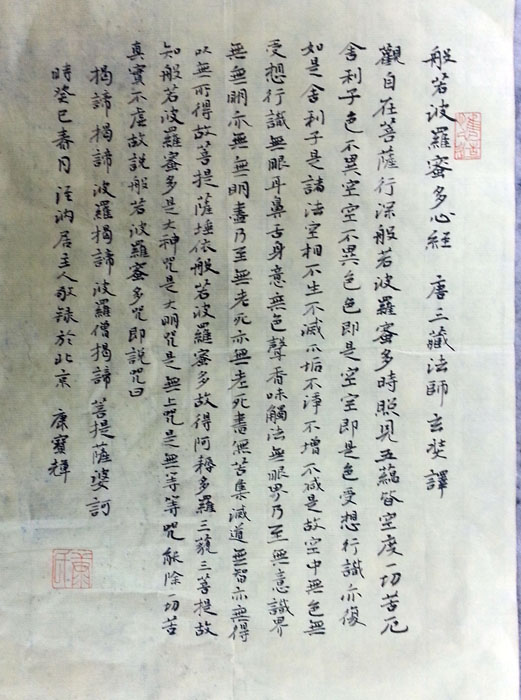 般若波羅蜜多心經 唐三藏法師玄奘譯
觀自在菩薩行深般若波羅蜜多時照見五蘊皆空度一切苦厄
舍利子色不異空空不異色色即是空空即是色受想行識亦復
如是舍利子是諸法空相不生不滅不垢不淨不增不减是故空中無色無
受想行識無眼耳鼻舌身意無色聲香味觸法無眼界乃至無意識界
無無明亦無無明盡乃至無老死亦無老死盡無苦集滅道無智亦無得
以無所得故菩提薩埵依般若波羅蜜多故得阿耨多羅三藐三菩提故
知般若波羅蜜多是大神咒是大明咒是無上咒是無等等咒能除一切苦
真實不虛故說般若波羅蜜多咒即說咒曰
揭諦揭諦波羅揭諦波羅僧揭諦菩提薩婆訶
時癸巳春月 居主人敬錄於北京 康寶輝